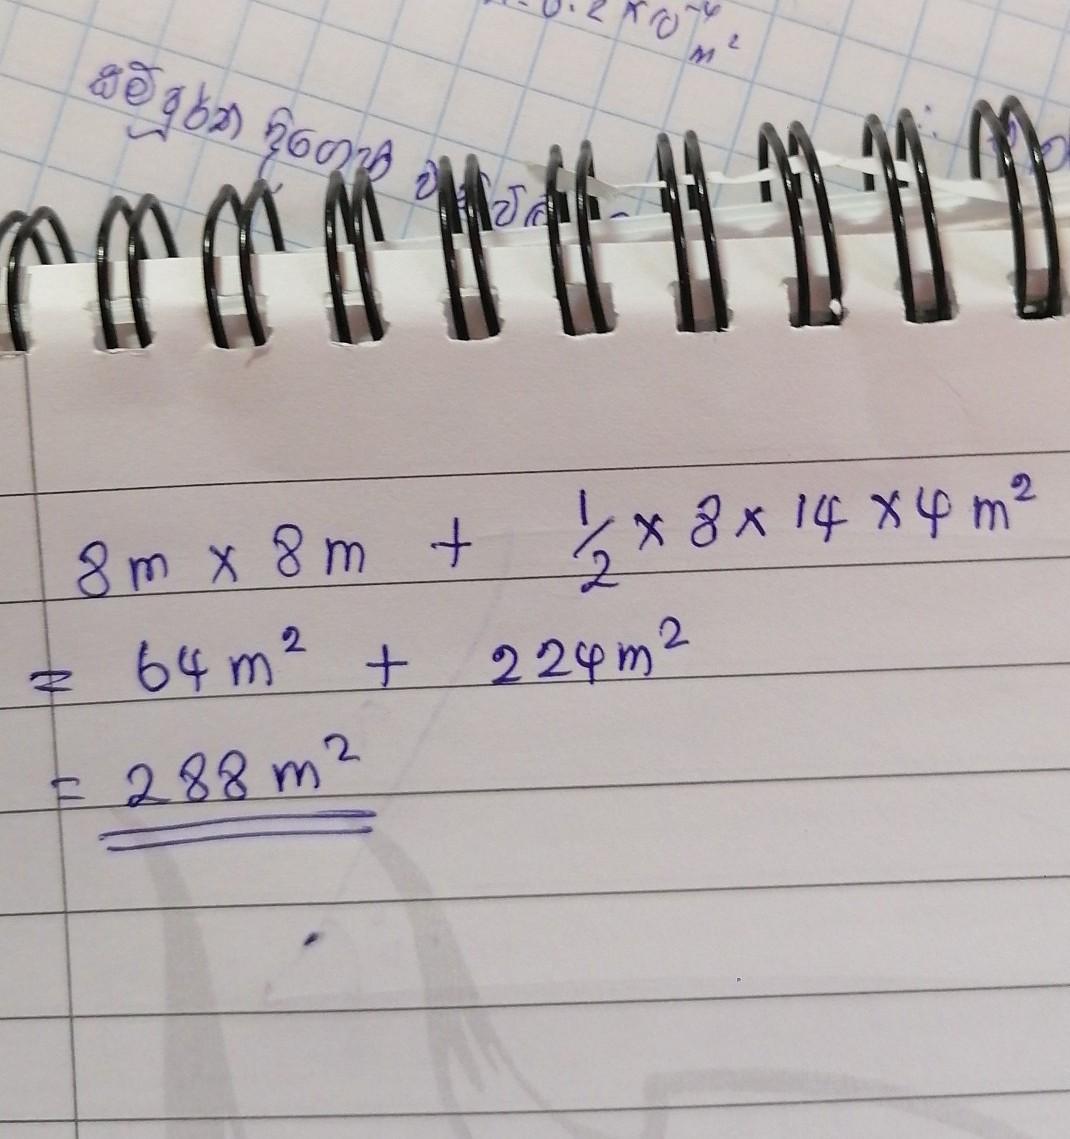 0.2 × 10⁻⁴ m²
8m × 8m + 1/2 × 8 × 14 × 4 m²
= 64 m² + 224 m²
= 288 m²